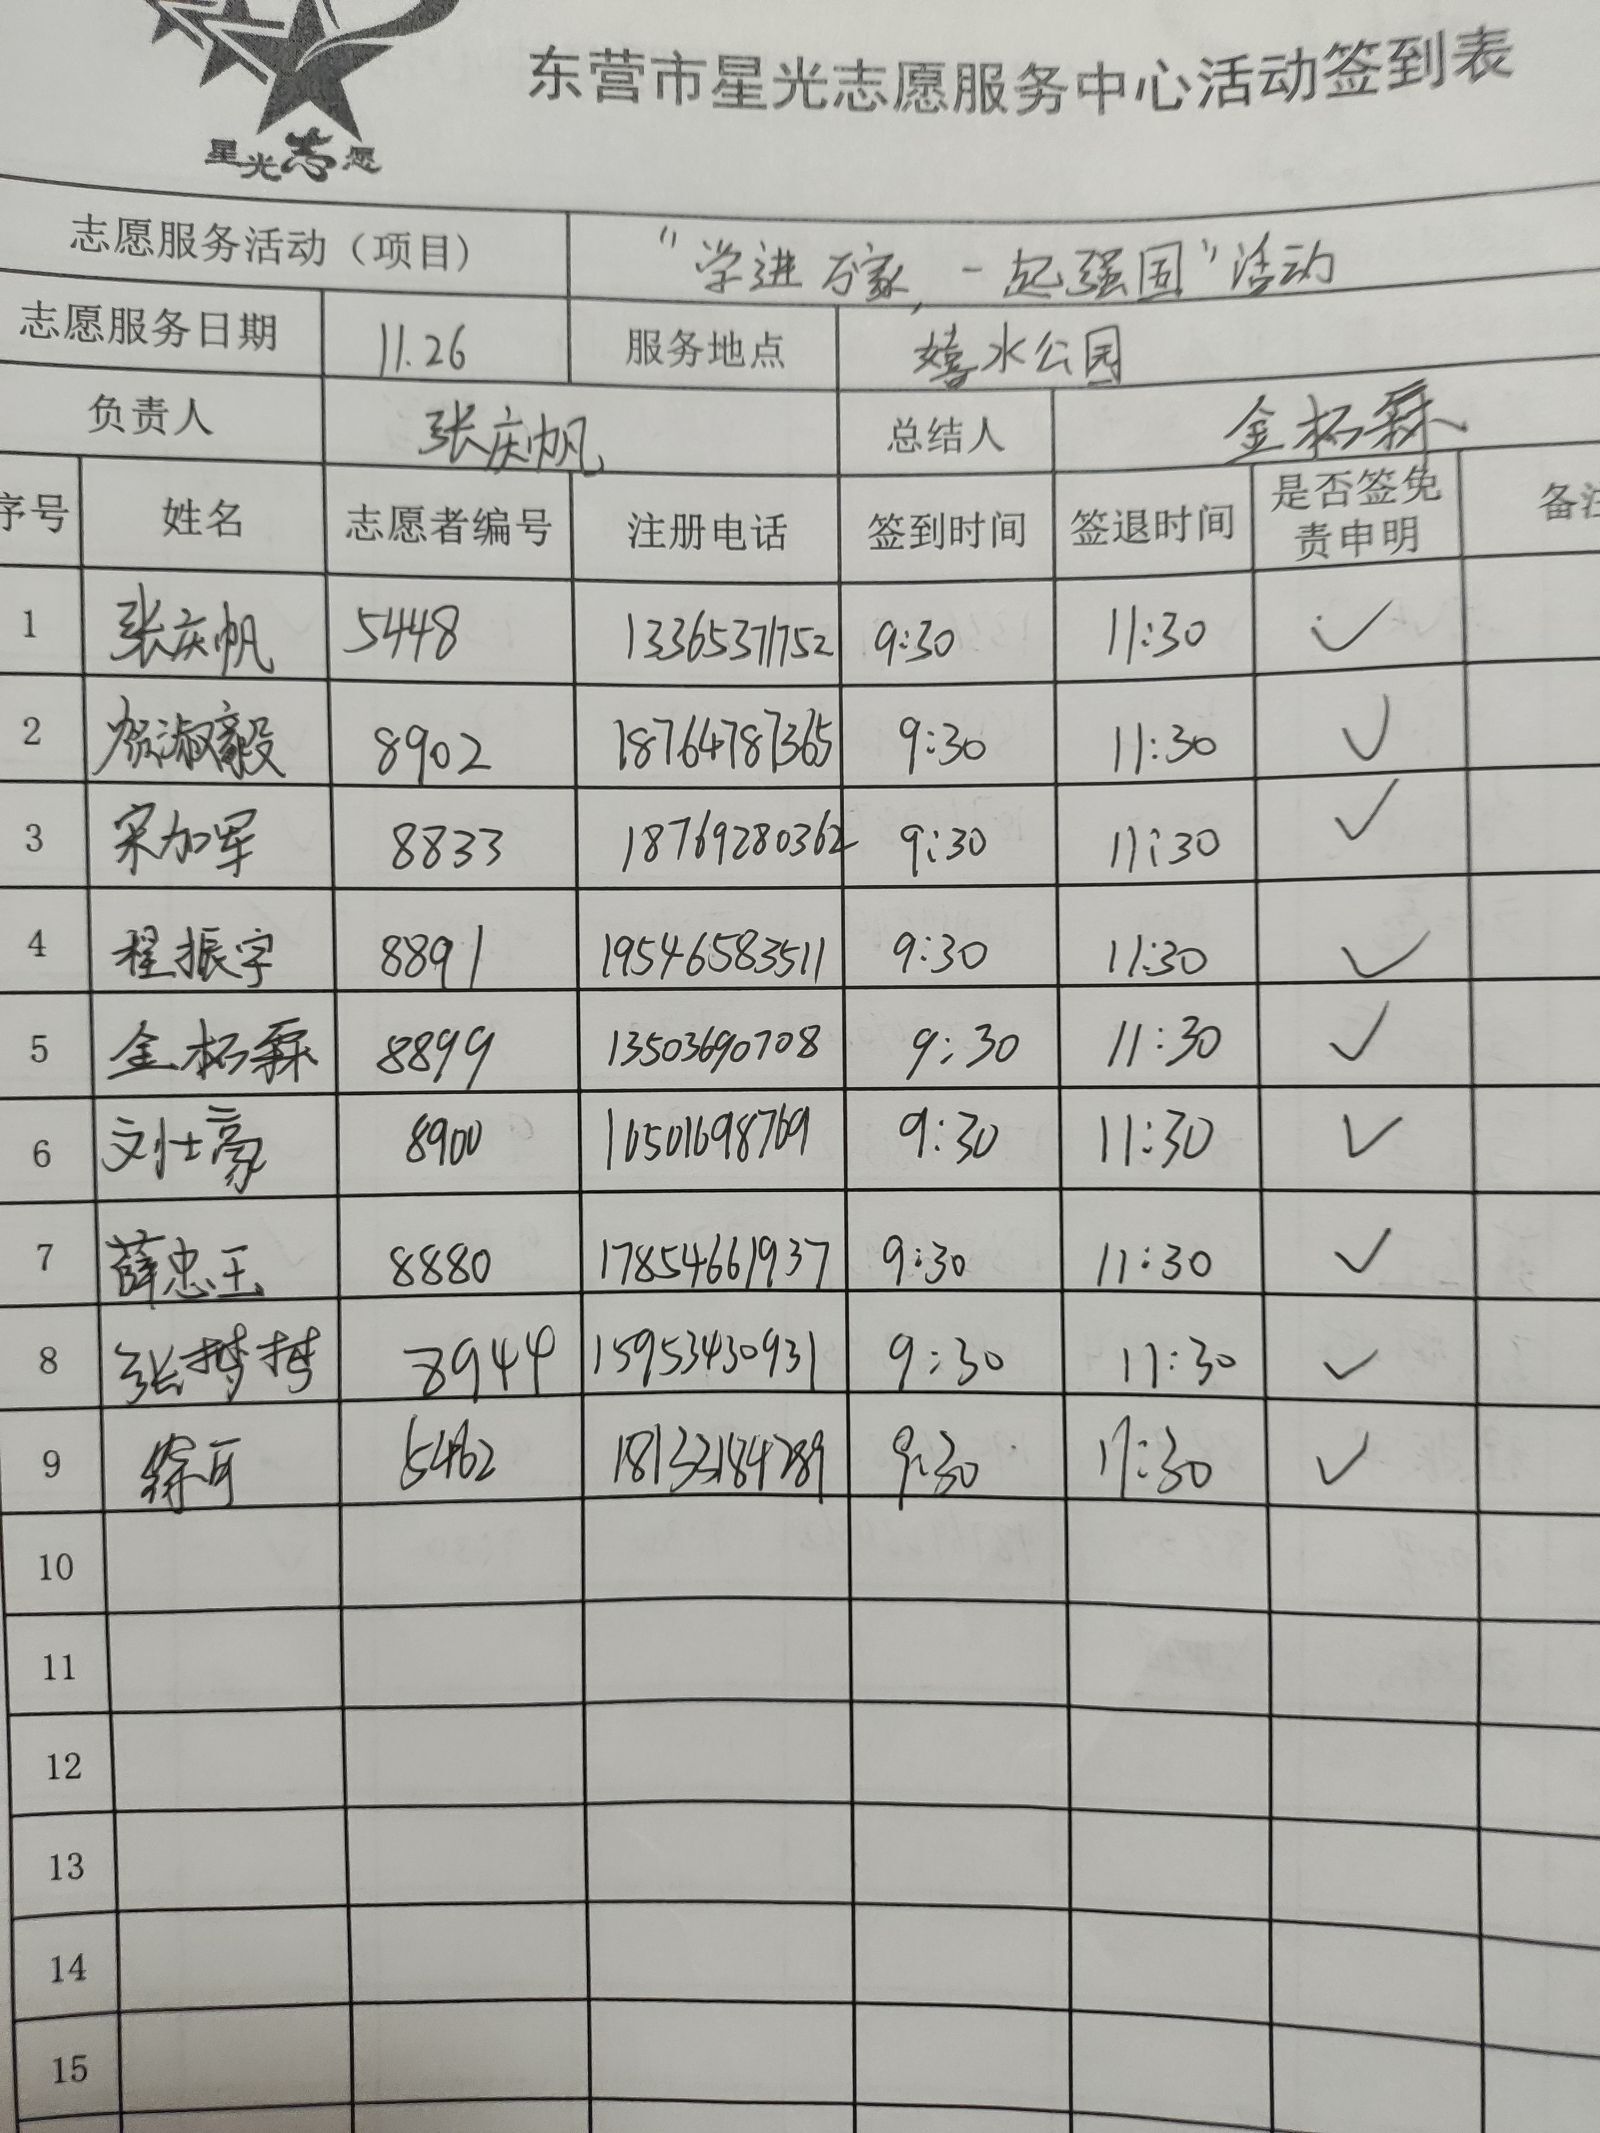 东营市星光志愿服务中心活动签到表
星光志愿
志愿服务活动（项目） “学进万家，一起强国”活动
志愿服务日期 11.26 服务地点 嬉水公园
负责人 张庆帆 总结人 金杯霖
序号 姓名 志愿者编号 注册电话 签到时间 签退时间 是否签免责申明 备注
1 张庆帆 5448 13365371752 9:30 11:30 ✓
2 8902 18764787365 9:30 11:30 ✓
3 宋加军 8833 18769280362 9:30 11:30 ✓
4 程振宇 8891 19546583511 9:30 11:30 ✓
5 金杯霖 8899 13503690708 9:30 11:30 ✓
6 刘仕豪 8900 16501698769 9:30 11:30 ✓
7 薛忠玉 8880 17854661937 9:30 11:30 ✓
8 张梦梦 8944 15953430931 9:30 11:30 ✓
9 徐可 5462 9:30 11:30 ✓
10
11
12
13
14
15